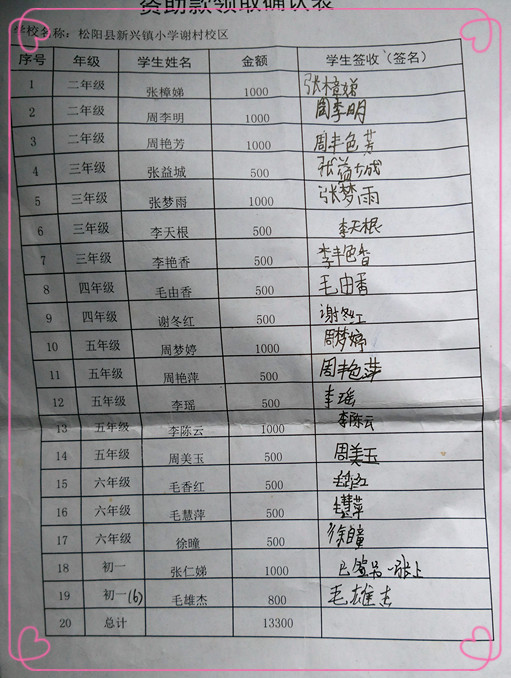 资助款领取确认表
学校名称：松阳县新兴镇小学谢村校区
序号 年级 学生姓名 金额 学生签收（签名）
1 二年级 张樟娣 1000 张樟娣
2 二年级 周李明 1000 周李明
3 二年级 周艳芳 1000 周艳芳
4 三年级 张益城 500 张益城
5 三年级 张梦雨 1000 张梦雨
6 三年级 李天根 500 李天根
7 三年级 李艳香 500 李艳香
8 四年级 毛由香 500 毛由香
9 四年级 谢冬红 500 谢冬红
10 五年级 周梦婷 1000 周梦婷
11 五年级 周艳萍 500 周艳萍
12 五年级 李瑶 500 李瑶
13 五年级 李陈云 1000 李陈云
14 五年级 周美玉 500 周美玉
15 六年级 毛香红 500 毛香红
16 六年级 毛慧萍 500 毛慧萍
17 六年级 徐曈 500 徐曈
18 初一 张仁娣 1000 已签另一张上
19 初一(6) 毛雄杰 800 毛雄杰
20 总计 13300